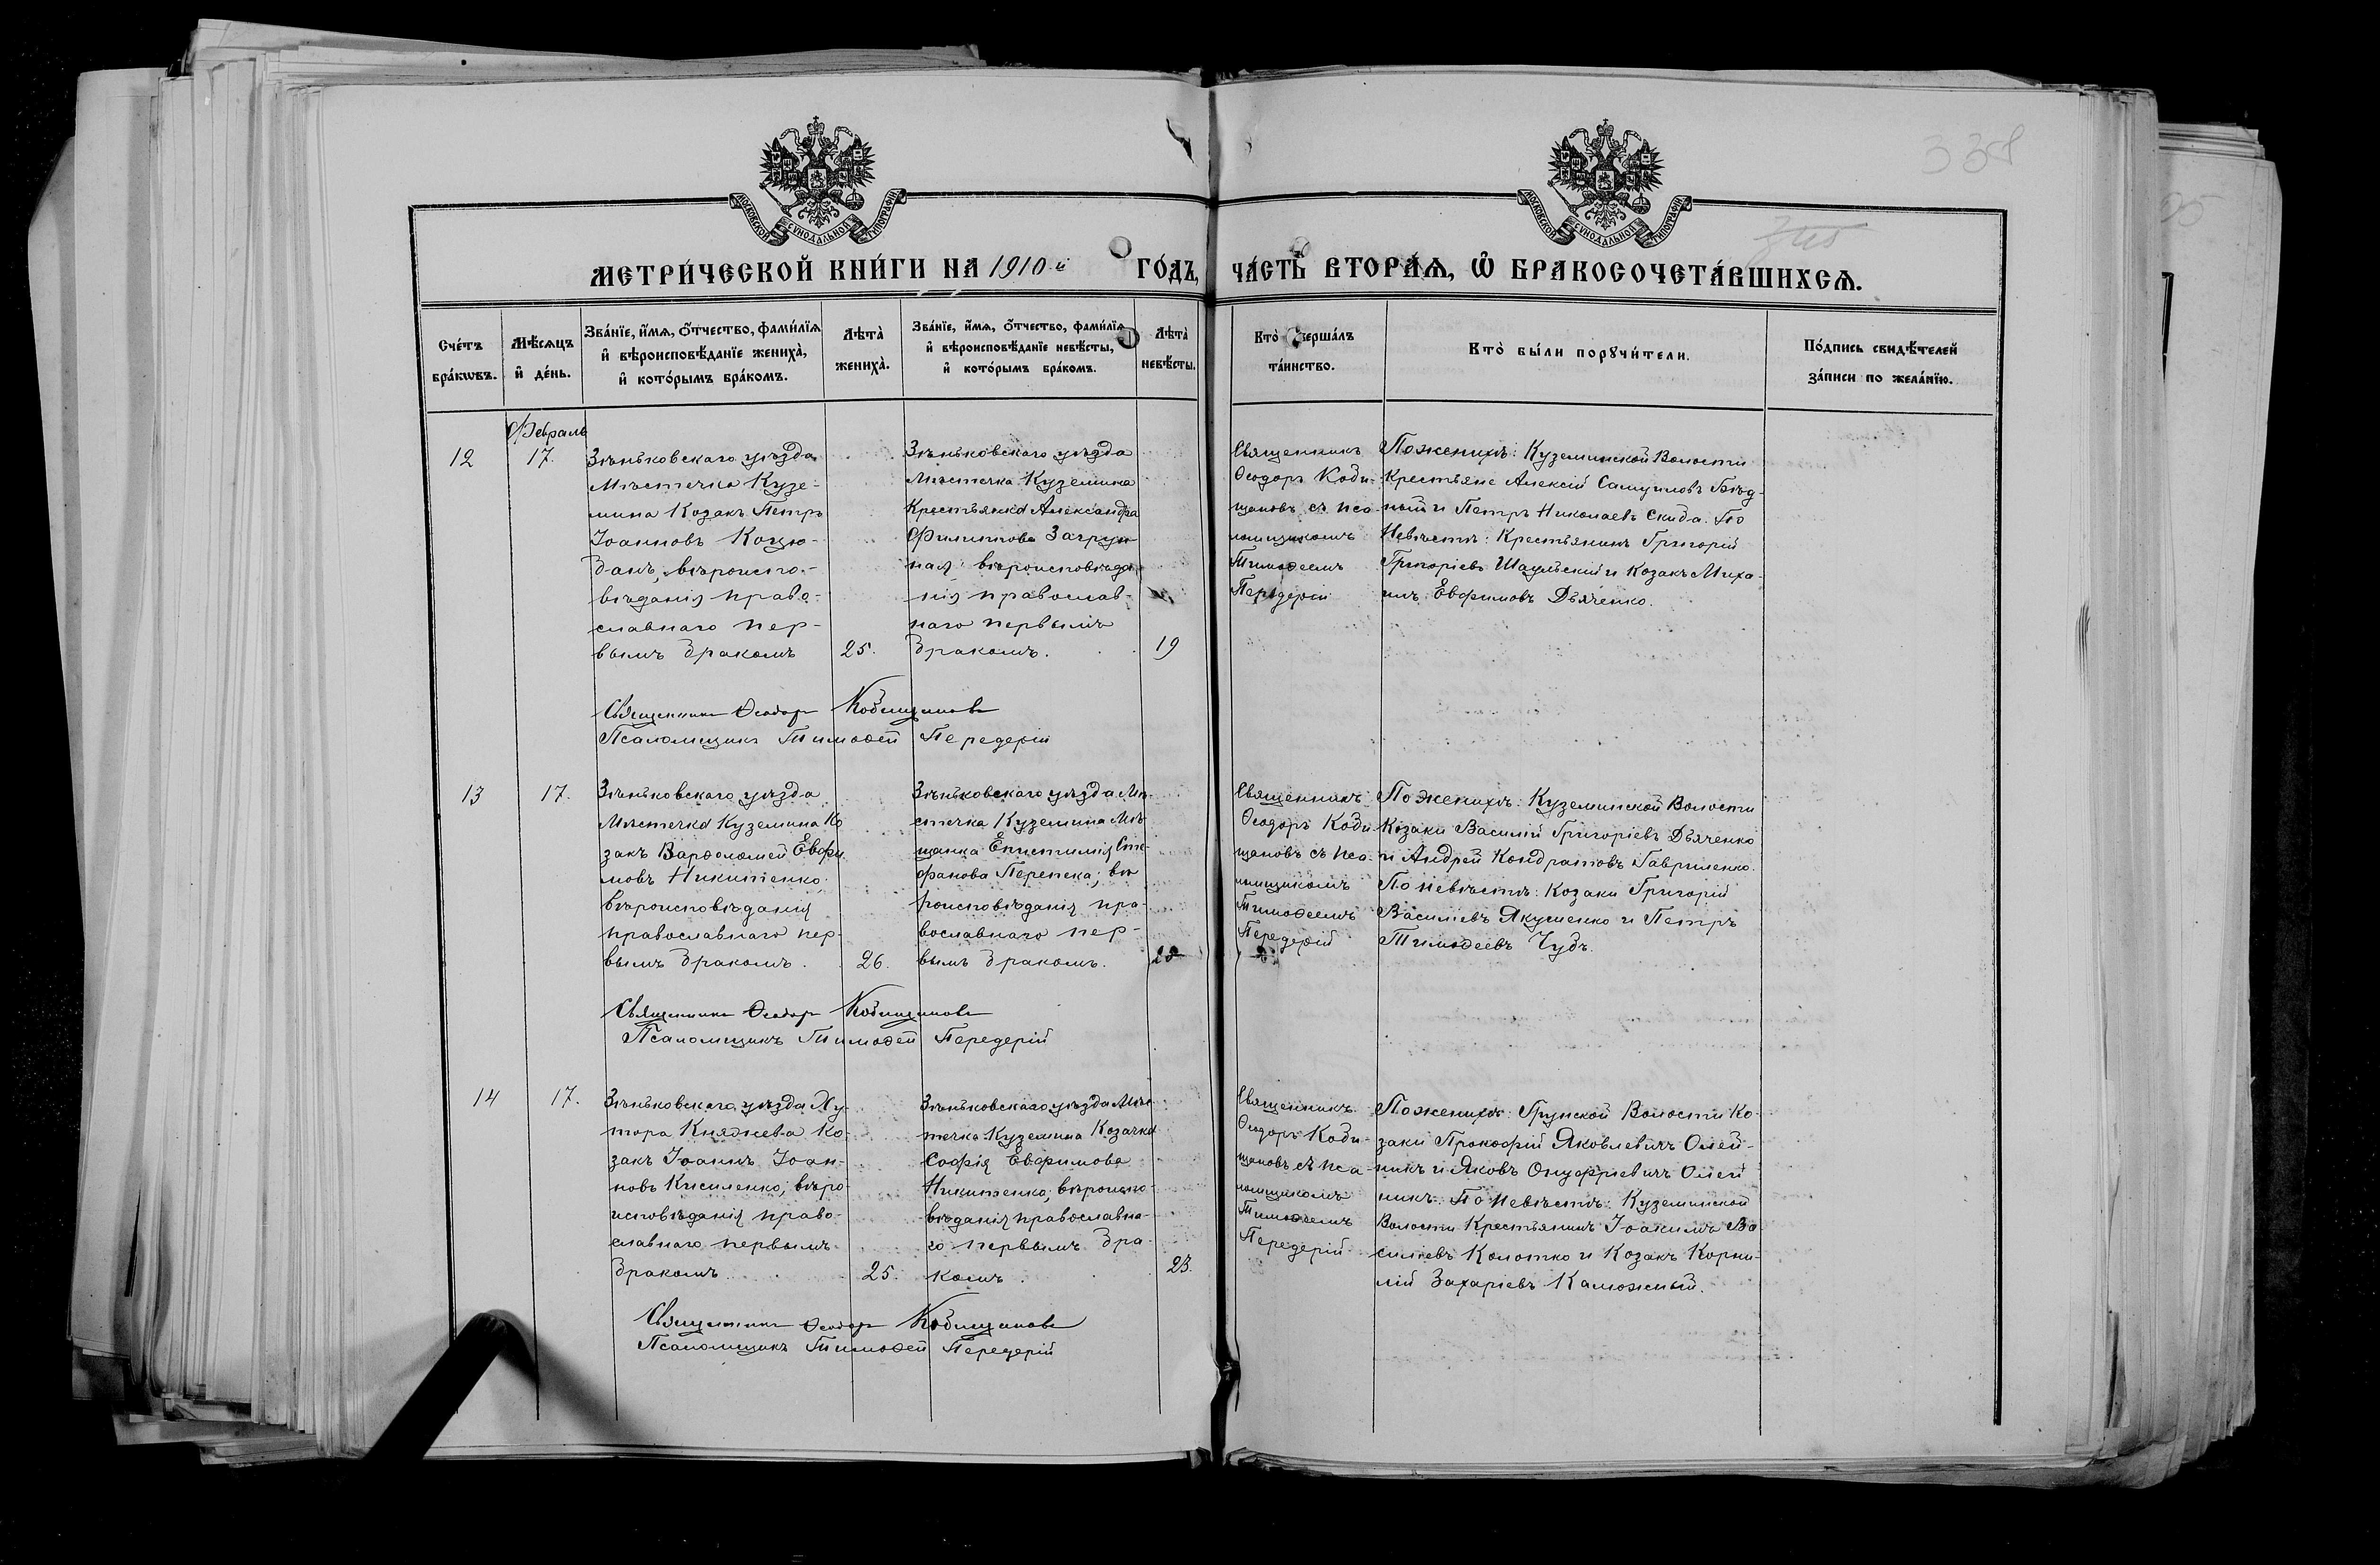 338
МОСКОВСКОЙ СѴНОДАЛЬНОЙ ТИПОГРАФІИ
МОСКОВСКОЙ СѴНОДАЛЬНОЙ ТИПОГРАФІИ
МЕТРИ́ЧЕСКОЙ КНИ́ГИ НА 1910-й ГО́ДЪ, ЧА́СТЬ ВТОРА́Ѧ, Ѽ БРАКОСОЧЕТА́ВШИХСѦ.
Сче́тъ
бра́кѡвъ.
Мѣ́сѧцъ
и҆ де́нь.
Зва́нїе, и҆́мѧ, ѻ҆́тчество, фами́лїѧ
и҆ вѣроисповѣ́данїе жениха̀,
и҆ кото́рымъ бра́комъ.
Лѣта̀
жениха̀.
Зва́нїе, и҆́мѧ, ѻ҆́тчество, фами́лїѧ
и҆ вѣроисповѣ́данїе невѣ́сты,
и҆ кото́рымъ бра́комъ.
Лѣта̀
невѣ́сты.
Кто̀ соверша́лъ
та́инство.
Кто̀ бы́ли порꙋчи́тели.
По́дпись свидѣ́телей
за́писи по жела́нїю.
Февраль
12
17.
Зѣньковскаго уѣзда
Мѣстечка Кузе-
мина Козакъ Петръ
Іоанновъ Коцю-
банъ, вѣроиспо-
вѣданія право-
славнаго пер-
вымъ бракомъ
25.
Зѣньковскаго уѣзда
Мѣстечка Куземина
Крестьянка Александра
Филиппова Загрун
ная вѣроисповѣда
нія православ-
наго первымъ
бракомъ.
19
Священникъ
Ѳеодоръ Коби-
щановъ съ пса-
ломщикомъ
Тимоѳеемъ
Передерій
По женихѣ: Куземинской Волости
Крестьяне Алексій Самуиловъ Бѣд-
ный и Петръ Николаевъ Скида. По
Невѣстѣ: Крестьянинъ Григорій
Григоріевъ Шаульскій и Козакъ Миха-
илъ Евфимовъ Дьяченко.
Священникъ Ѳеодоръ Кобищановъ
Псаломщикъ Тимоѳей Передерій
13
17.
Зѣньковскаго уѣзда
Мѣстечка Куземина Ко
закъ Варѳоломей Евфи
мовъ Никитенко,
вѣроисповѣданія
православнаго пер-
вымъ бракомъ.
26.
Зѣньковскаго уѣзда Мѣ-
стечка Куземина Мѣ-
щанка Епистимія Сте-
фанова Перепека; вѣ
роисповѣданія пра-
вославнаго пер-
вымъ бракомъ.
Священникъ
Ѳеодоръ Коби-
щановъ съ пса-
ломщикомъ
Тимоѳеемъ
Передерій
По женихѣ: Куземинской Волости
Козаки Василій Григоріевъ Дьяченко
и Андрей Кондратовъ Гавриленко.
По невѣстѣ: Козаки Григорій
Василіевъ Якушенко и Петръ
Тимоѳеевъ Чубъ.
Священникъ Ѳеодоръ Кобищановъ
Псаломщикъ Тимоѳей Передерій
14
17.
Зѣньковскаго уѣзда Ху-
тора Княжева Ко-
закъ Іоаннъ Іоан-
новъ Кисиленко, вѣро-
исповѣданія право-
славнаго первымъ
бракомъ.
25.
Зѣньковскаго уѣзда Мѣс-
течка Куземина Козачка
Софія Евфимова
Никитенко, вѣроиспо-
вѣданія православна-
го первымъ бра-
комъ.
23.
Священникъ
Ѳеодоръ Коби-
щановъ съ пса-
ломщикомъ
Тимоѳеемъ
Передерій
По женихѣ: Грунской Волости Ко-
заки Прокофій Яковлевичъ Олей-
никъ и Яковъ Онуфріевичъ Олей
никъ. По невѣстѣ: Куземинской
Волости Крестьянинъ Іоакимъ Ва
силіевъ Колотко и Козакъ Корни-
лій Захаріевъ Каможный.
Священникъ Ѳеодоръ Кобищановъ
Псаломщикъ Тимоѳей Передерій